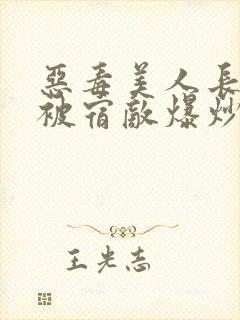 惡毒美人長
被宿敵爆炒
王光志